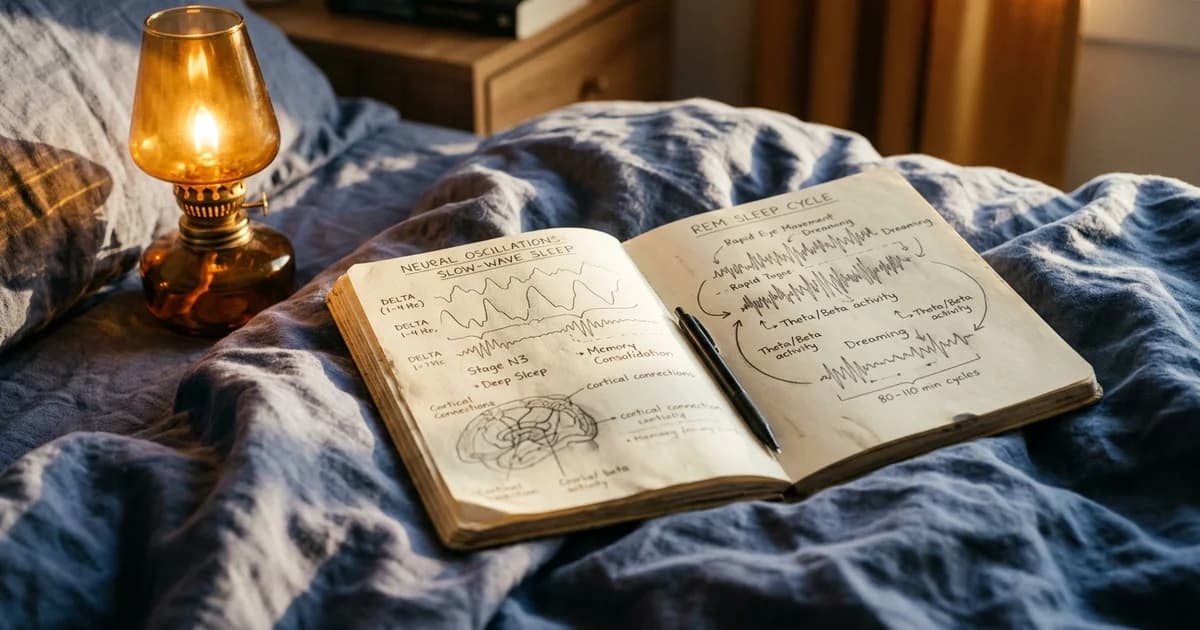 NEURAL OSCILLATIONS:
SLOW-WAVE SLEEP
DELTA
(1-4 Hc)
DELTA
1-4 Hc.
DELTA
Stage N3
• Deep Sleep
• Memory
Consolidation
Cortical
Connections
cortical connections
cortical connection
REM SLEEP CYCLE
Rapid Eye Movement
Dreamning
Dreaming
Rapid
Theta/Beta activity
Theta/Beta
activity
Theta/Beta
activity
Dreaming
80-110 min cycles